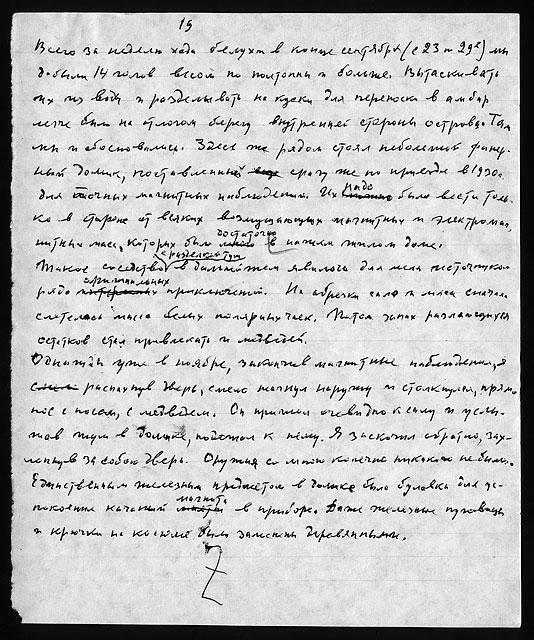 19
Всего за неделю хода белухи в конце сентября (с 23 по 29е) мы
добыли 14 голов весом по полтонны и больше. Вытаскивать
их из воды и разделывать на куски для переноски в амбар
легче было на отлогом берегу внутренней стороны острова. Там
мы и обосновались. Здесь же рядом стоял небольшой фанер-
ный домик, поставленный сразу же по приезде в 1930г.
для точных магнитных наблюдений. Их надо было вести толь-
ко в стороне от всяких возмущающих магнитных и электромаг-
нитных масс, которых было достаточно в нашем жилом доме.
Такое соседство с разделкой туш в дальнейшем явилось для меня источником
ряда оригинальных приключений. На обрезки сала и мяса сначала
слеталась масса белых полярных чаек. Потом запах разлагающихся
остатков стал привлекать и медведей.
Однажды уже в ноябре, закончив магнитные наблюдения, я
распахнув дверь, смело шагнул наружу и столкнулся, прямо
нос с носом, с медведем. Он пришел очевидно к салу и услы-
шав шум в домике, подошел к нему. Я заскочил обратно, зах-
лопнув за собою дверь. Оружия со мною конечно никакого не было.
Единственным железным предметом в домике была булавка для ус-
покоения качаний магнита в приборе. Даже железные пуговицы
и крючки на костюме были заменены деревянными.